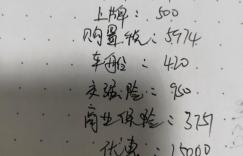 上牌：500
购置税：5974
车船：420
交强险：950
商业保险：3751
优惠：15000